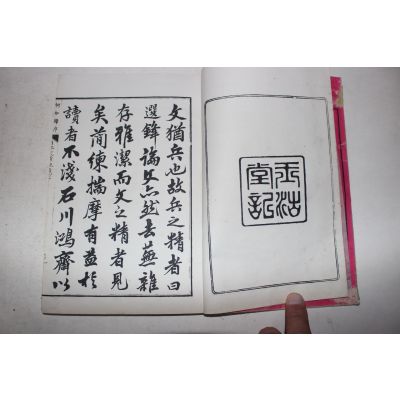 文猶兵也故兵之精者曰
選鋒論文亦然去蕪雜
存雅潔而文之精者見
矣簡練揣摩有益於
讀者不淺石川鴻齋以